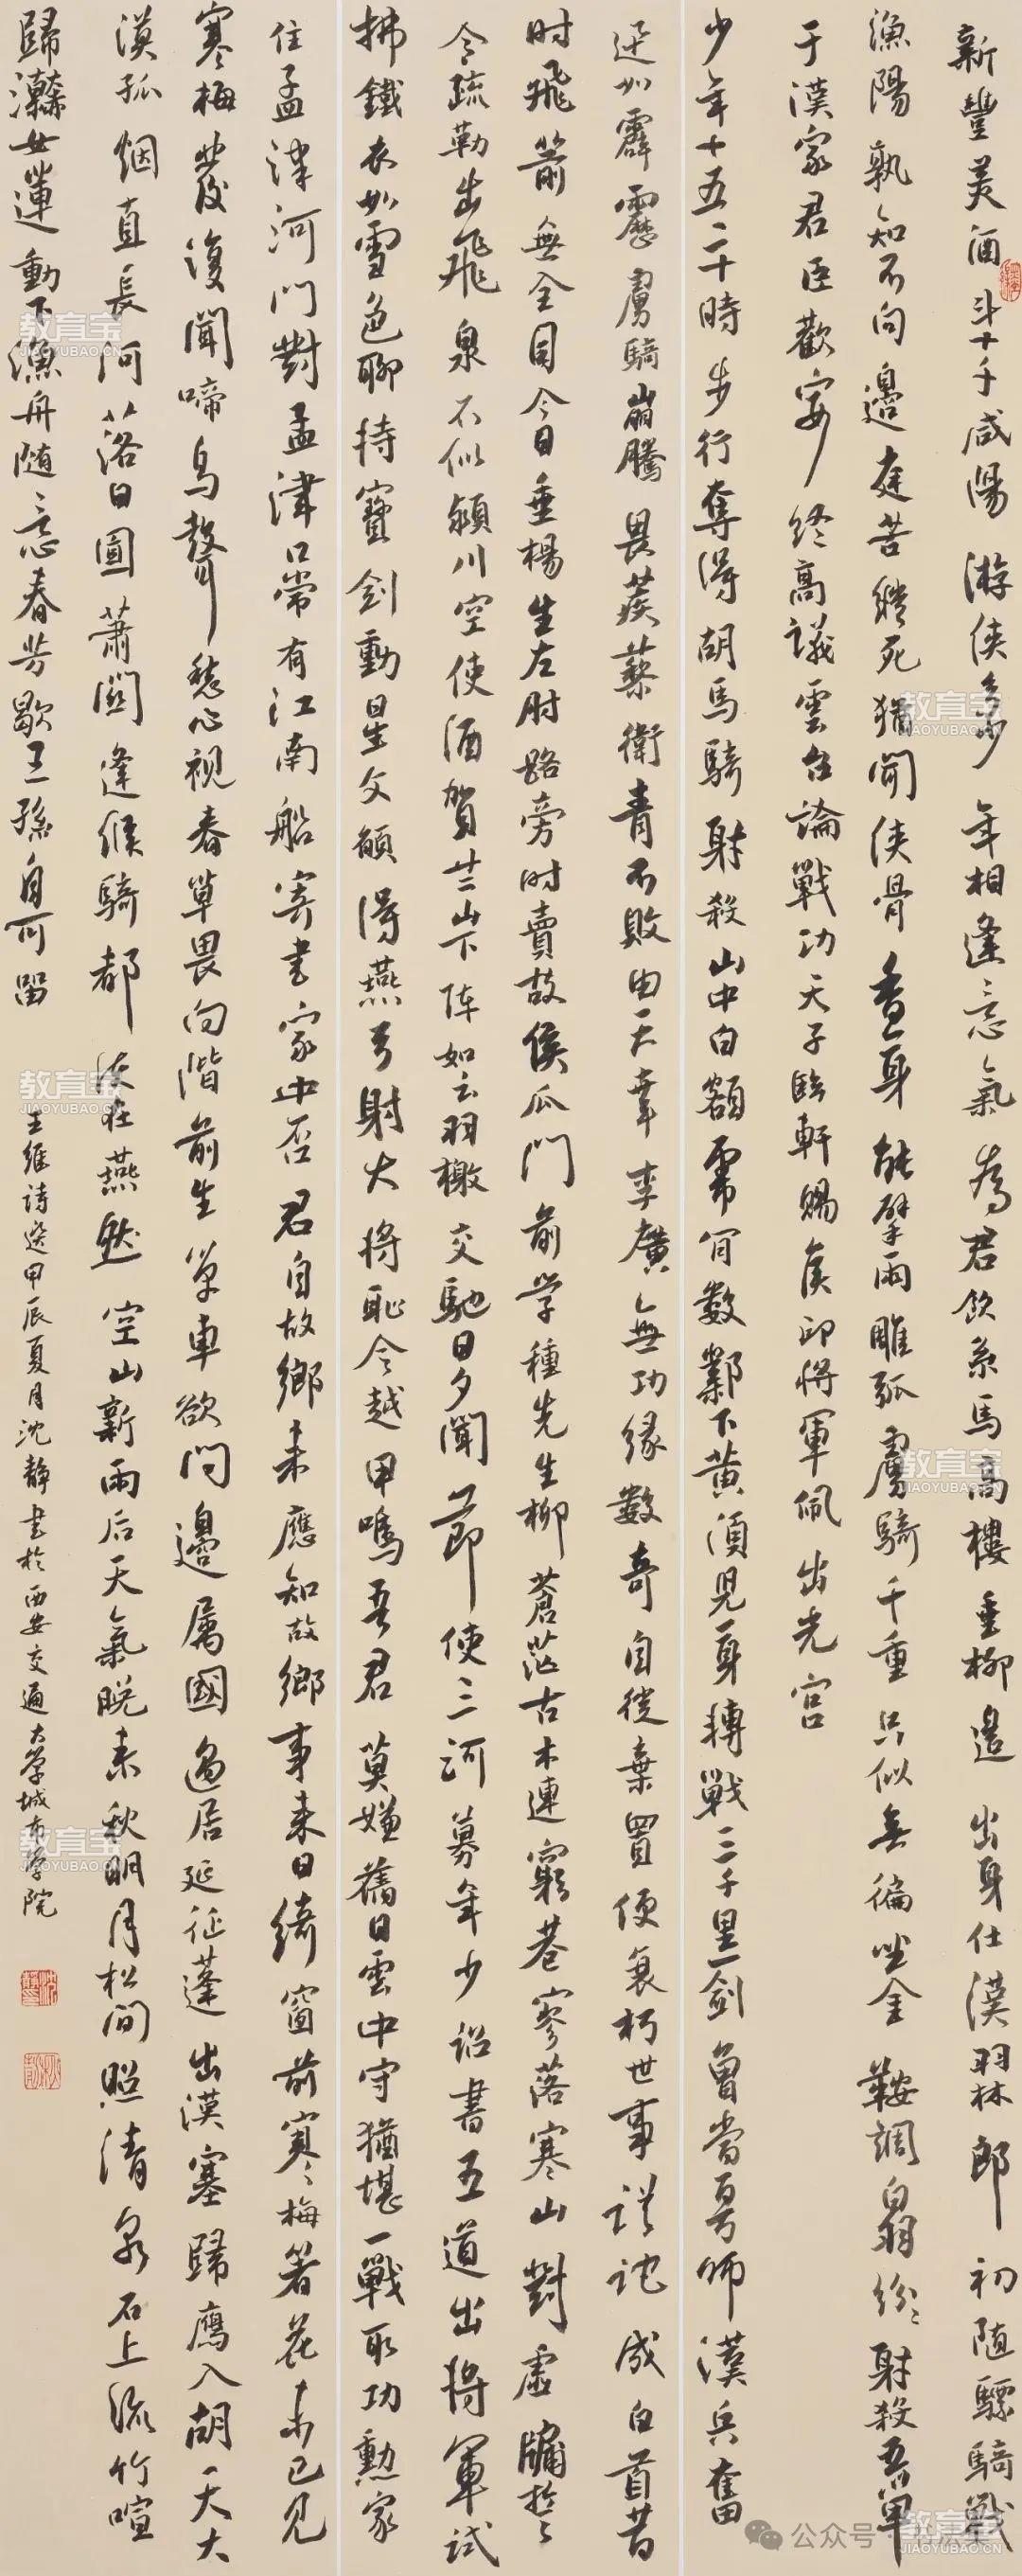 新豐美酒斗十千咸陽游俠多少年相逢意氣為君飲系馬高樓垂柳邊出身仕漢羽林郎初隨驃騎戰
漁陽孰知不向邊庭苦縱死猶聞俠骨香一身能擘兩雕弧虜騎千重只似無偏坐金鞍調白羽紛紛射殺五單
于漢家君臣歡宴終高議雲台論戰功天子臨軒賜侯印將軍佩出光宮
少年十五二十時步行奪得胡馬騎射殺山中白額虎肯數鄴下黃須兒一身轉戰三千里一劍曾當百萬師漢兵奮
迅如霹靂虜騎崩騰畏蒺藜衛青不敗由天幸李廣無功緣數奇自從棄置便衰朽世事蹉跎成白首昔
时飛箭無全目今日垂楊生左肘路旁时賣故侯瓜門前学種先生柳蒼茫古木連窮巷寥落寒山對虛牖誓
令疏勒出飛泉不似潁川空使酒賀蘭山下陣如云羽檄交馳日夕聞節使三河募年少詔書五道出將軍試
拂鐵衣如雪色聊持寶劍動星文願得燕弓射大將恥令越甲鳴吾君莫嫌舊日雲中守猶堪一戰取功勳家
住孟津河門對孟津口常有江南船寄書家中否君自故鄉來應知故鄉事來日綺窗前寒梅著花未已見
寒梅發復聞啼鳥聲愁心視春草畏向階前生單車欲問邊屬國過居延征蓬出漢塞歸鴈入胡天大
漠孤烟直長河落日圓蕭關逢候騎都護在燕然空山新雨后天氣晚來秋明月松間照清泉石上流竹喧
歸浣女蓮動下漁舟隨意春芳歇王孫自可留
王維詩選甲辰夏月沈靜書於西安交通大学城市学院
教育宝
JIAOYUBAO.CN
教育宝
JIAOYUBAO.CN
教育宝
JIAOYUBAO.CN
教育宝
JIAOYUBAO.CN
教育宝
JIAOYUBAO.CN
教育宝
JIAOYUBAO.CN
公众号